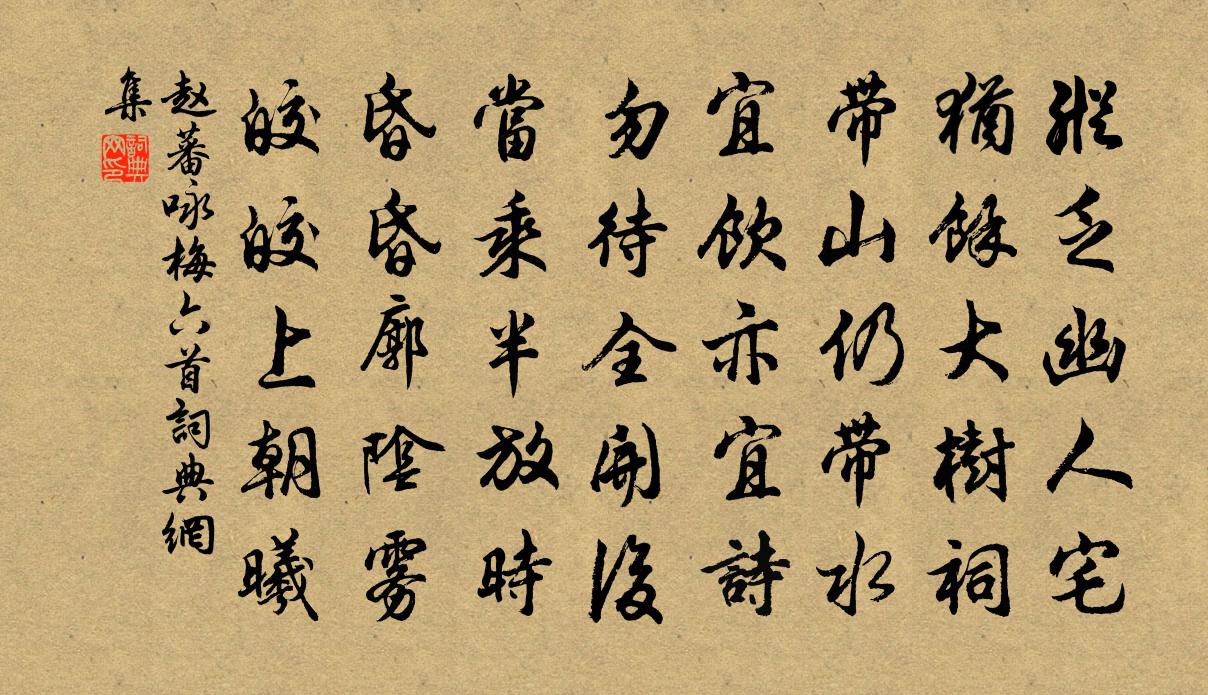 縱乏幽人宅
猶餘大樹祠
带山仍带水
宜飲亦宜詩
勿待全開後
當乘半放時
昏昏廓陰雾
皎皎上朝曦
赵蕃咏梅六首詞典網
集
詞典
网印